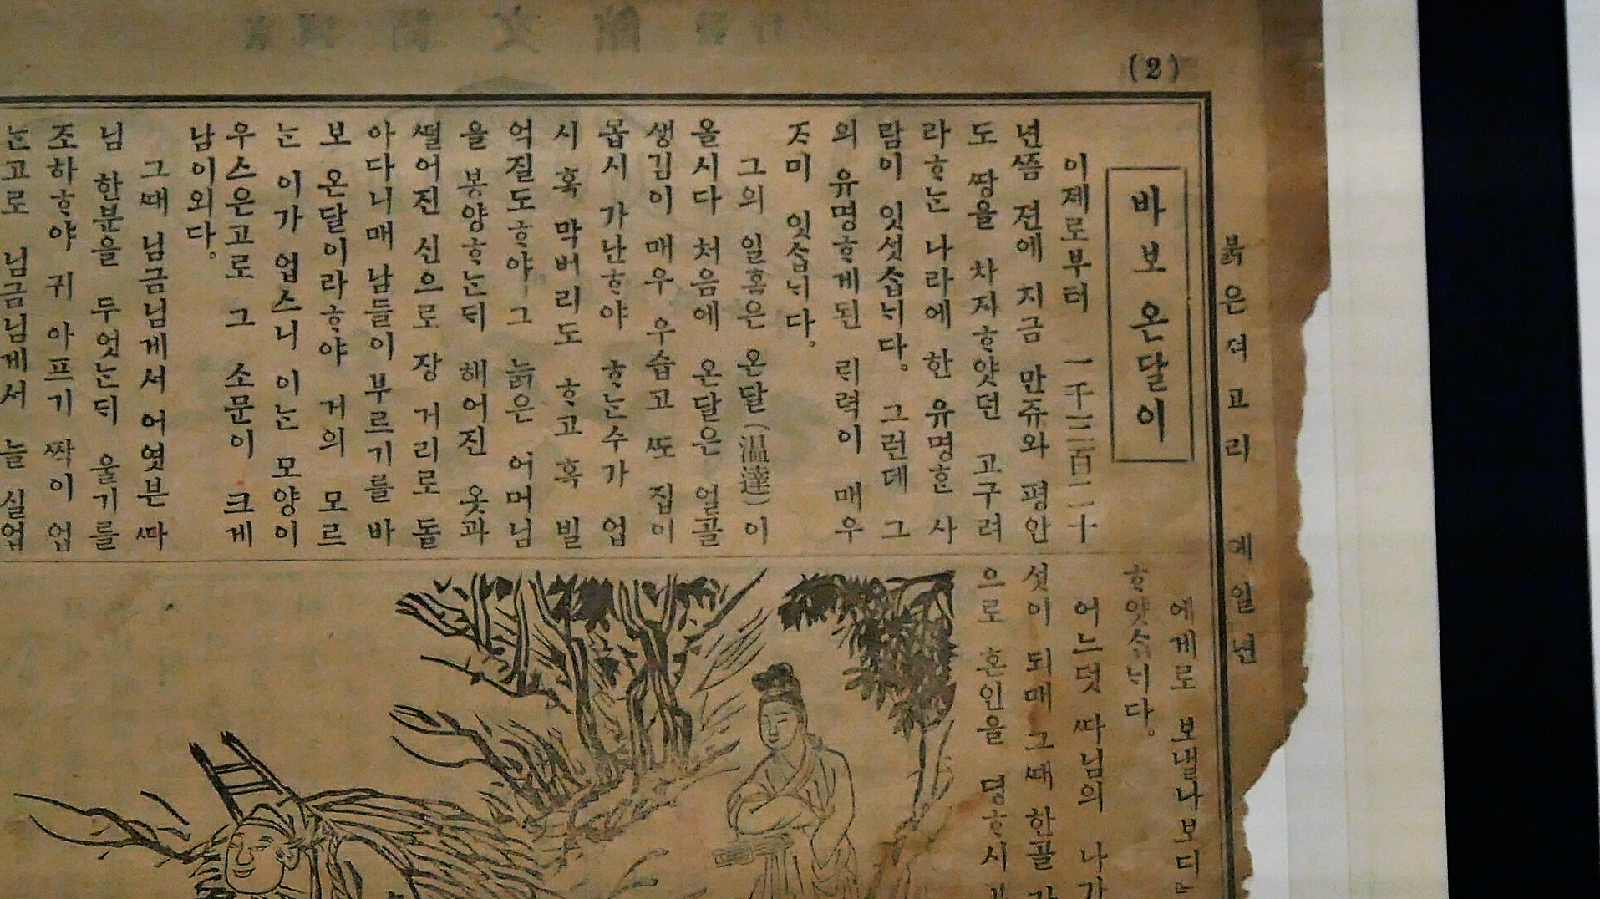 (2)
붉은져고리 예일년
바보 온달이
이제로부터 一千三百二十
년쯤 젼에 지금 만쥬와 평안
도 ᄯᅡᆼ을 차지ᄒᆞ얏던 고구려
라ᄒᆞᄂᆞᆫ 나라에 한 유명ᄒᆞᆫ 사
람이 잇섯습ᄂᆡ다。 그런데 그
의 유명ᄒᆞ게된 ᄅᆡ력이 매우
ᄌᆞ미 잇습ᄂᆡ다。
그의 일홈은 온달(温達)이
올시다 처음에 온달은 얼골
생김이 매우 우습고 ᄯᅩ 집이
몹시 가난ᄒᆞ야 ᄒᆞᄂᆞᆫ수가 업
시 혹 막버리도 ᄒᆞ고 혹 빌
억질도ᄒᆞ야 그 늙은 어머님
을 봉양ᄒᆞᄂᆞᆫᄃᆡ 해어진 옷과
ᄯᅥᆯ어진 신으로 장 거리로 돌
아다니매 남들이 부르기를 바
보 온달이라ᄒᆞ야 거의 모르
ᄂᆞᆫ 이가 업스니 이ᄂᆞᆫ 모양이
우스은고로 그 소문이 크게
남이외다。
그ᄯᅢ 님금님게서 어엿븐 ᄯᅡ
님 한분을 두엇ᄂᆞᆫᄃᆡ 울기를
조하ᄒᆞ야 귀 아프기 ᄶᅡᆨ이 업
ᄂᆞᆫ고로 님금님게서 늘 실업
에게로 보낼나보다
ᄒᆞ얏습ᄂᆡ다。
어느덧 ᄯᅡ님의 나
섯이 되매 그ᄯᅢ 한골
으로 혼인을 뎡ᄒᆞ시